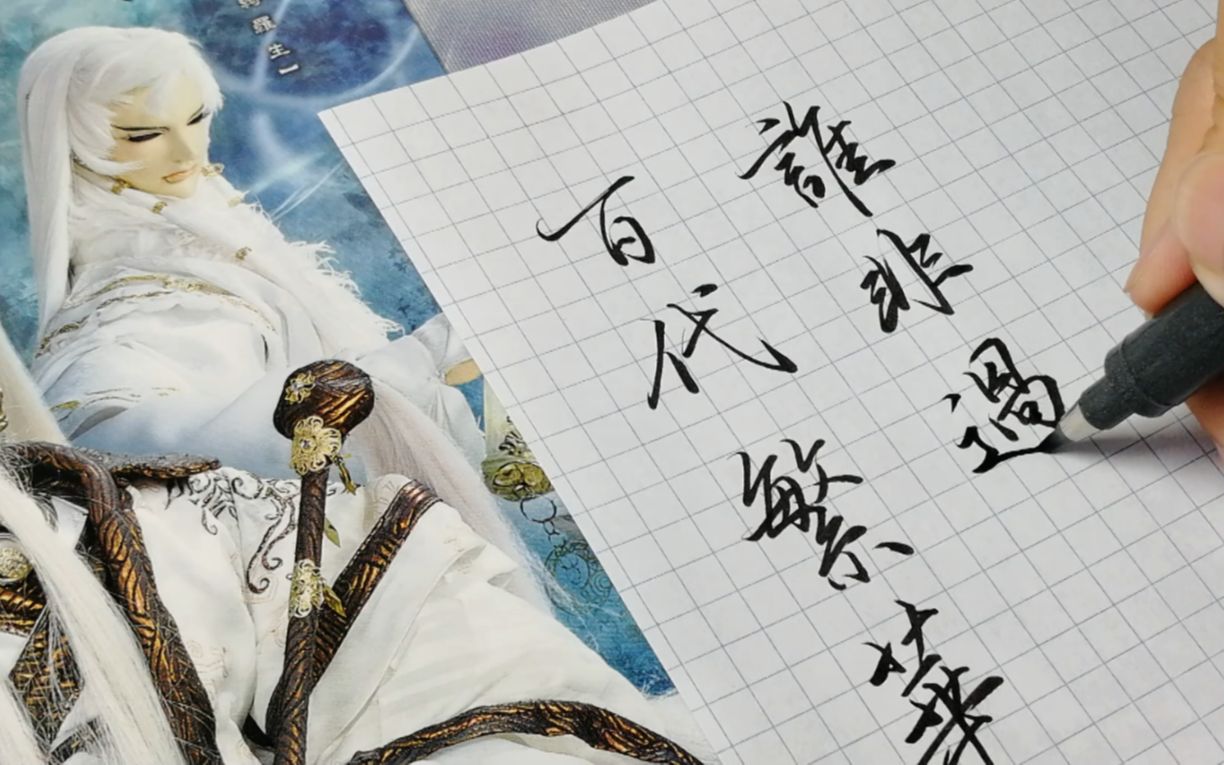 百代繁華
誰非過
羅生一